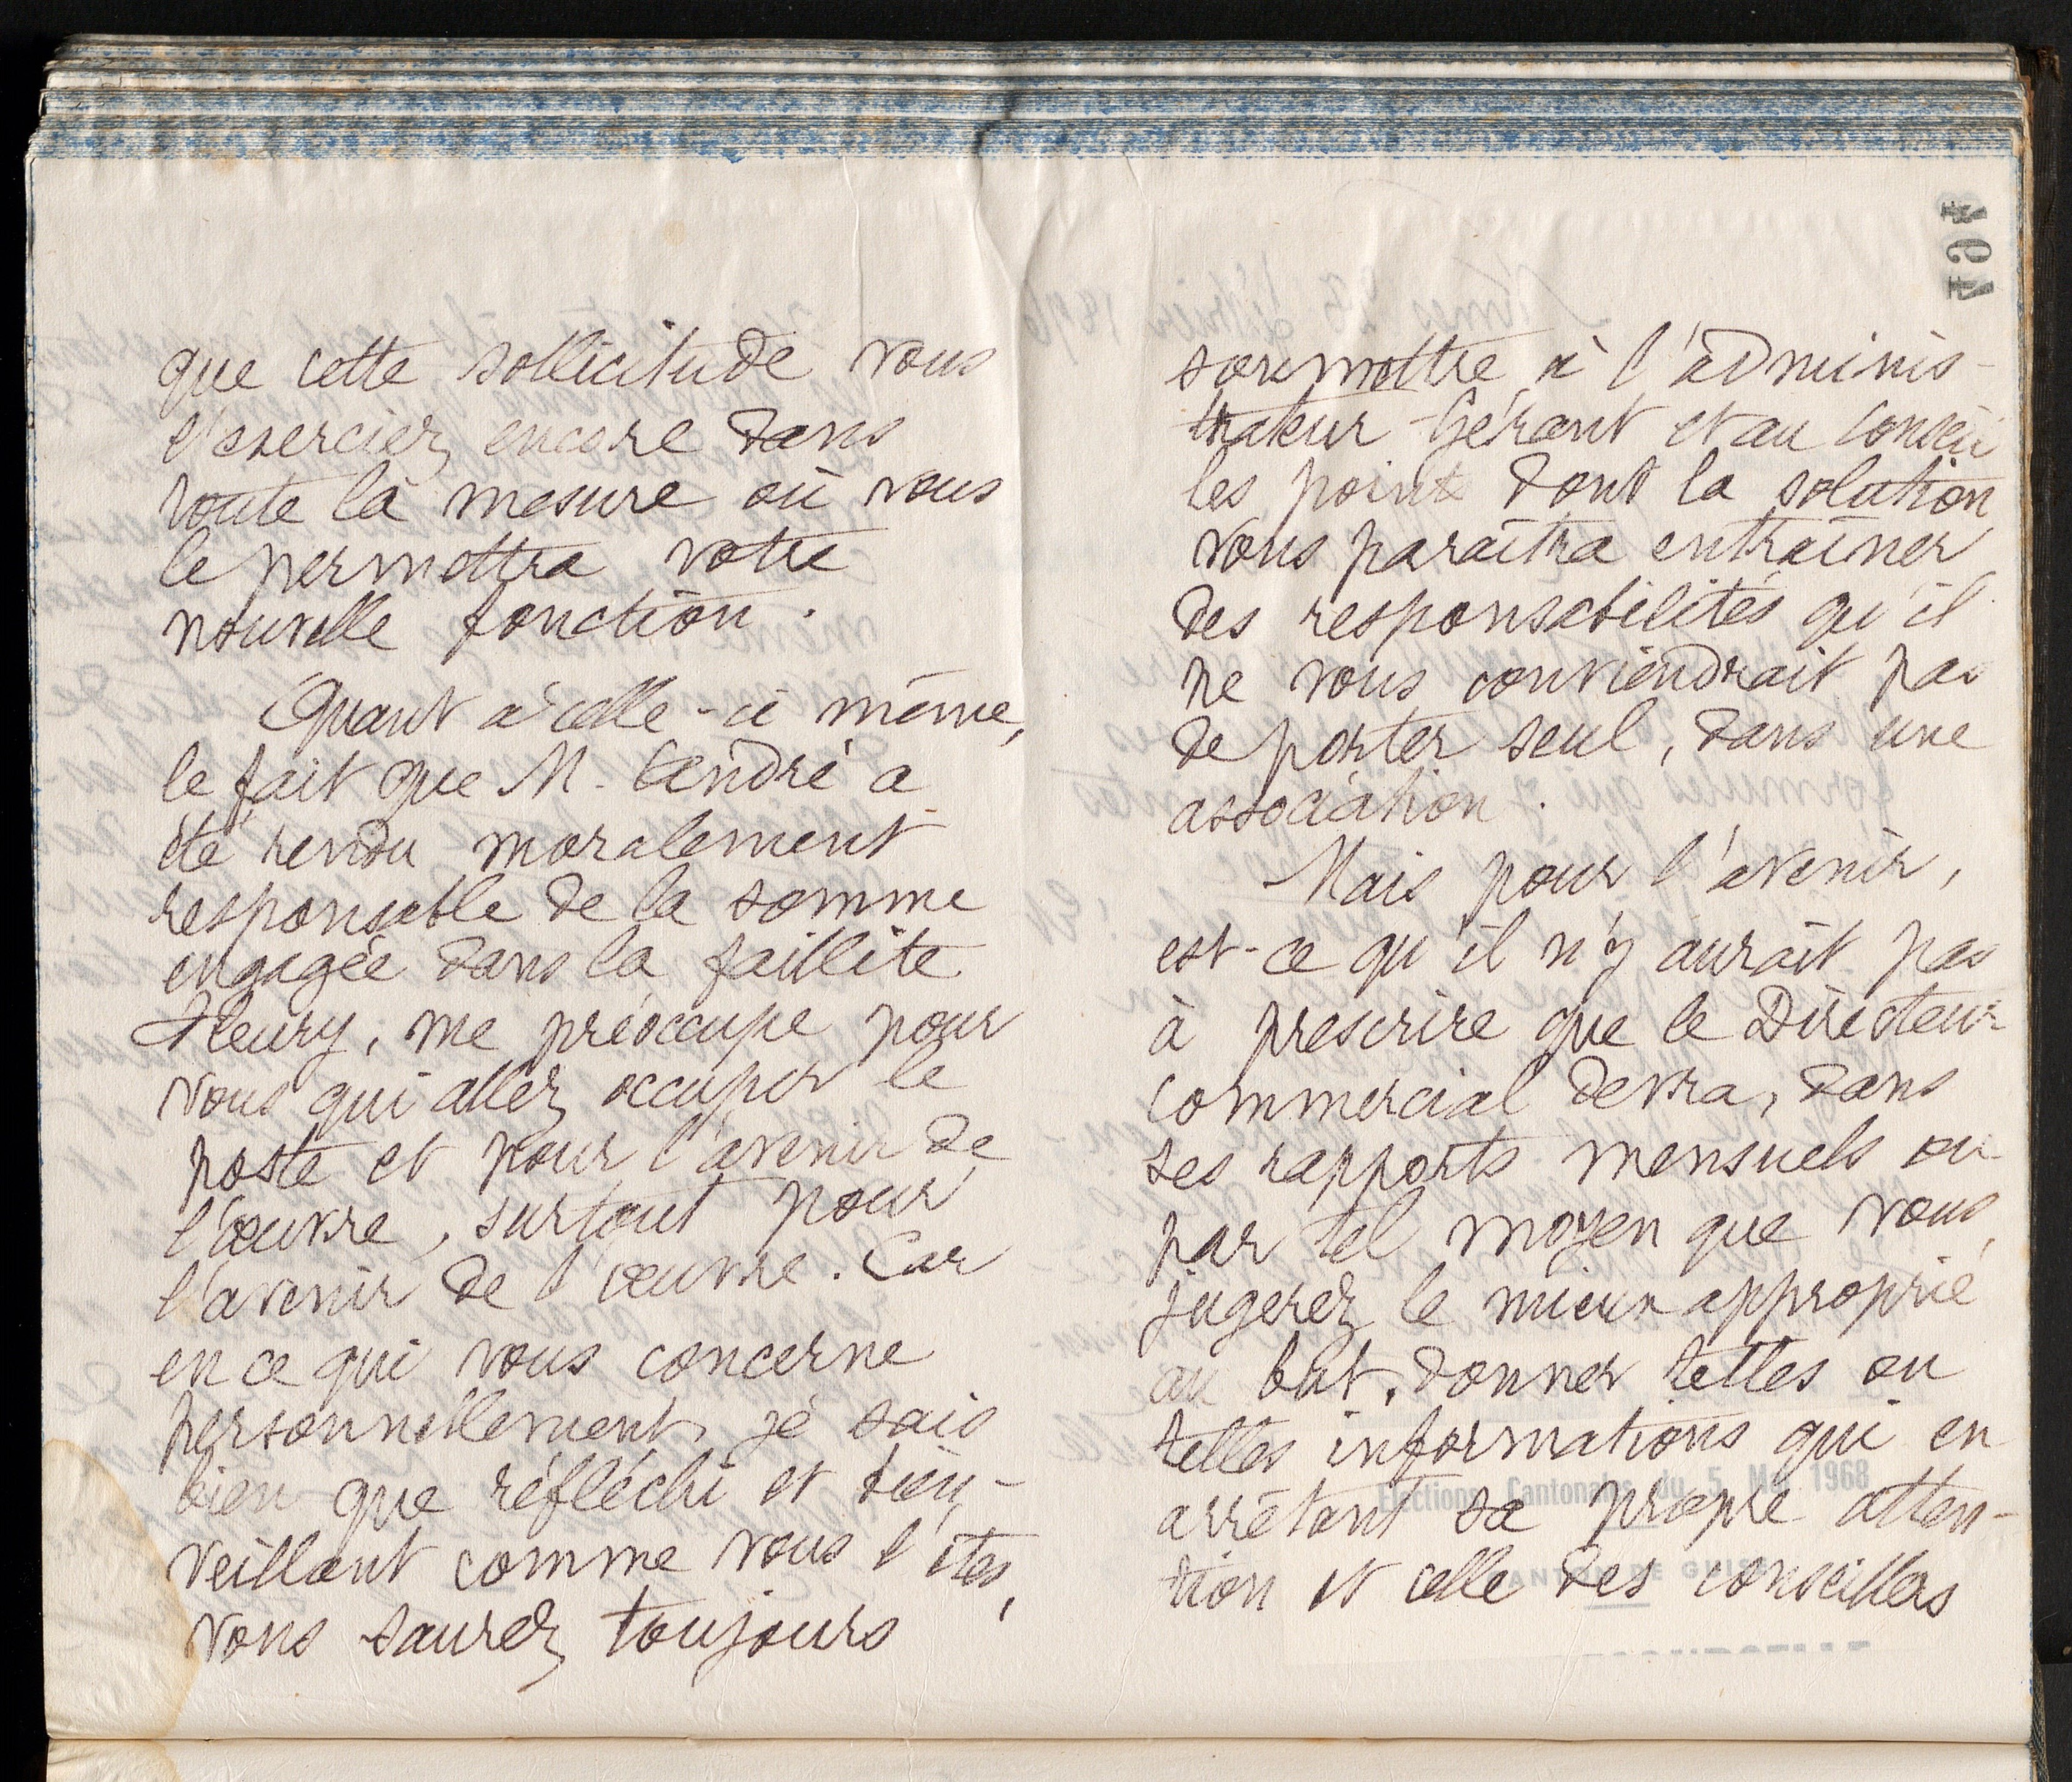 que cette sollicitude vous
l'exerciez encore dans
toute la mesure où vous
le permettra votre
nouvelle fonction.
Quant à celle-ci même,
le fait que M. André a
été rendu moralement
responsable de la somme
engagée dans la faillite
Fleury, me préoccupe pour
vous qui allez occuper le
poste et pour l'avenir de
l'œuvre, surtout pour
l'avenir de l'œuvre. Car
en ce qui vous concerne
personnellement, je sais
bien que réfléchi et bien-
veillant comme vous l'êtes,
vous saurez toujours
soumettre à l'adminis-
trateur-Gérant et au Conseil
les points dont la solution
vous paraîtra entraîner
des responsabilités qu'il
ne vous conviendrait pas
de porter seul, dans une
association.
Mais pour l'avenir,
est-ce qu'il n'y aurait pas
à prescrire que le Directeur
commercial devra, dans
ses rapports mensuels ou
par tel moyen que vous
jugerez le mieux approprié
au but, donner telles ou
telles informations qui en
arrêtant sa propre atten-
tion et celle des conseillers
Elections Cantonales du 5 1968
CANTON DE GUISE